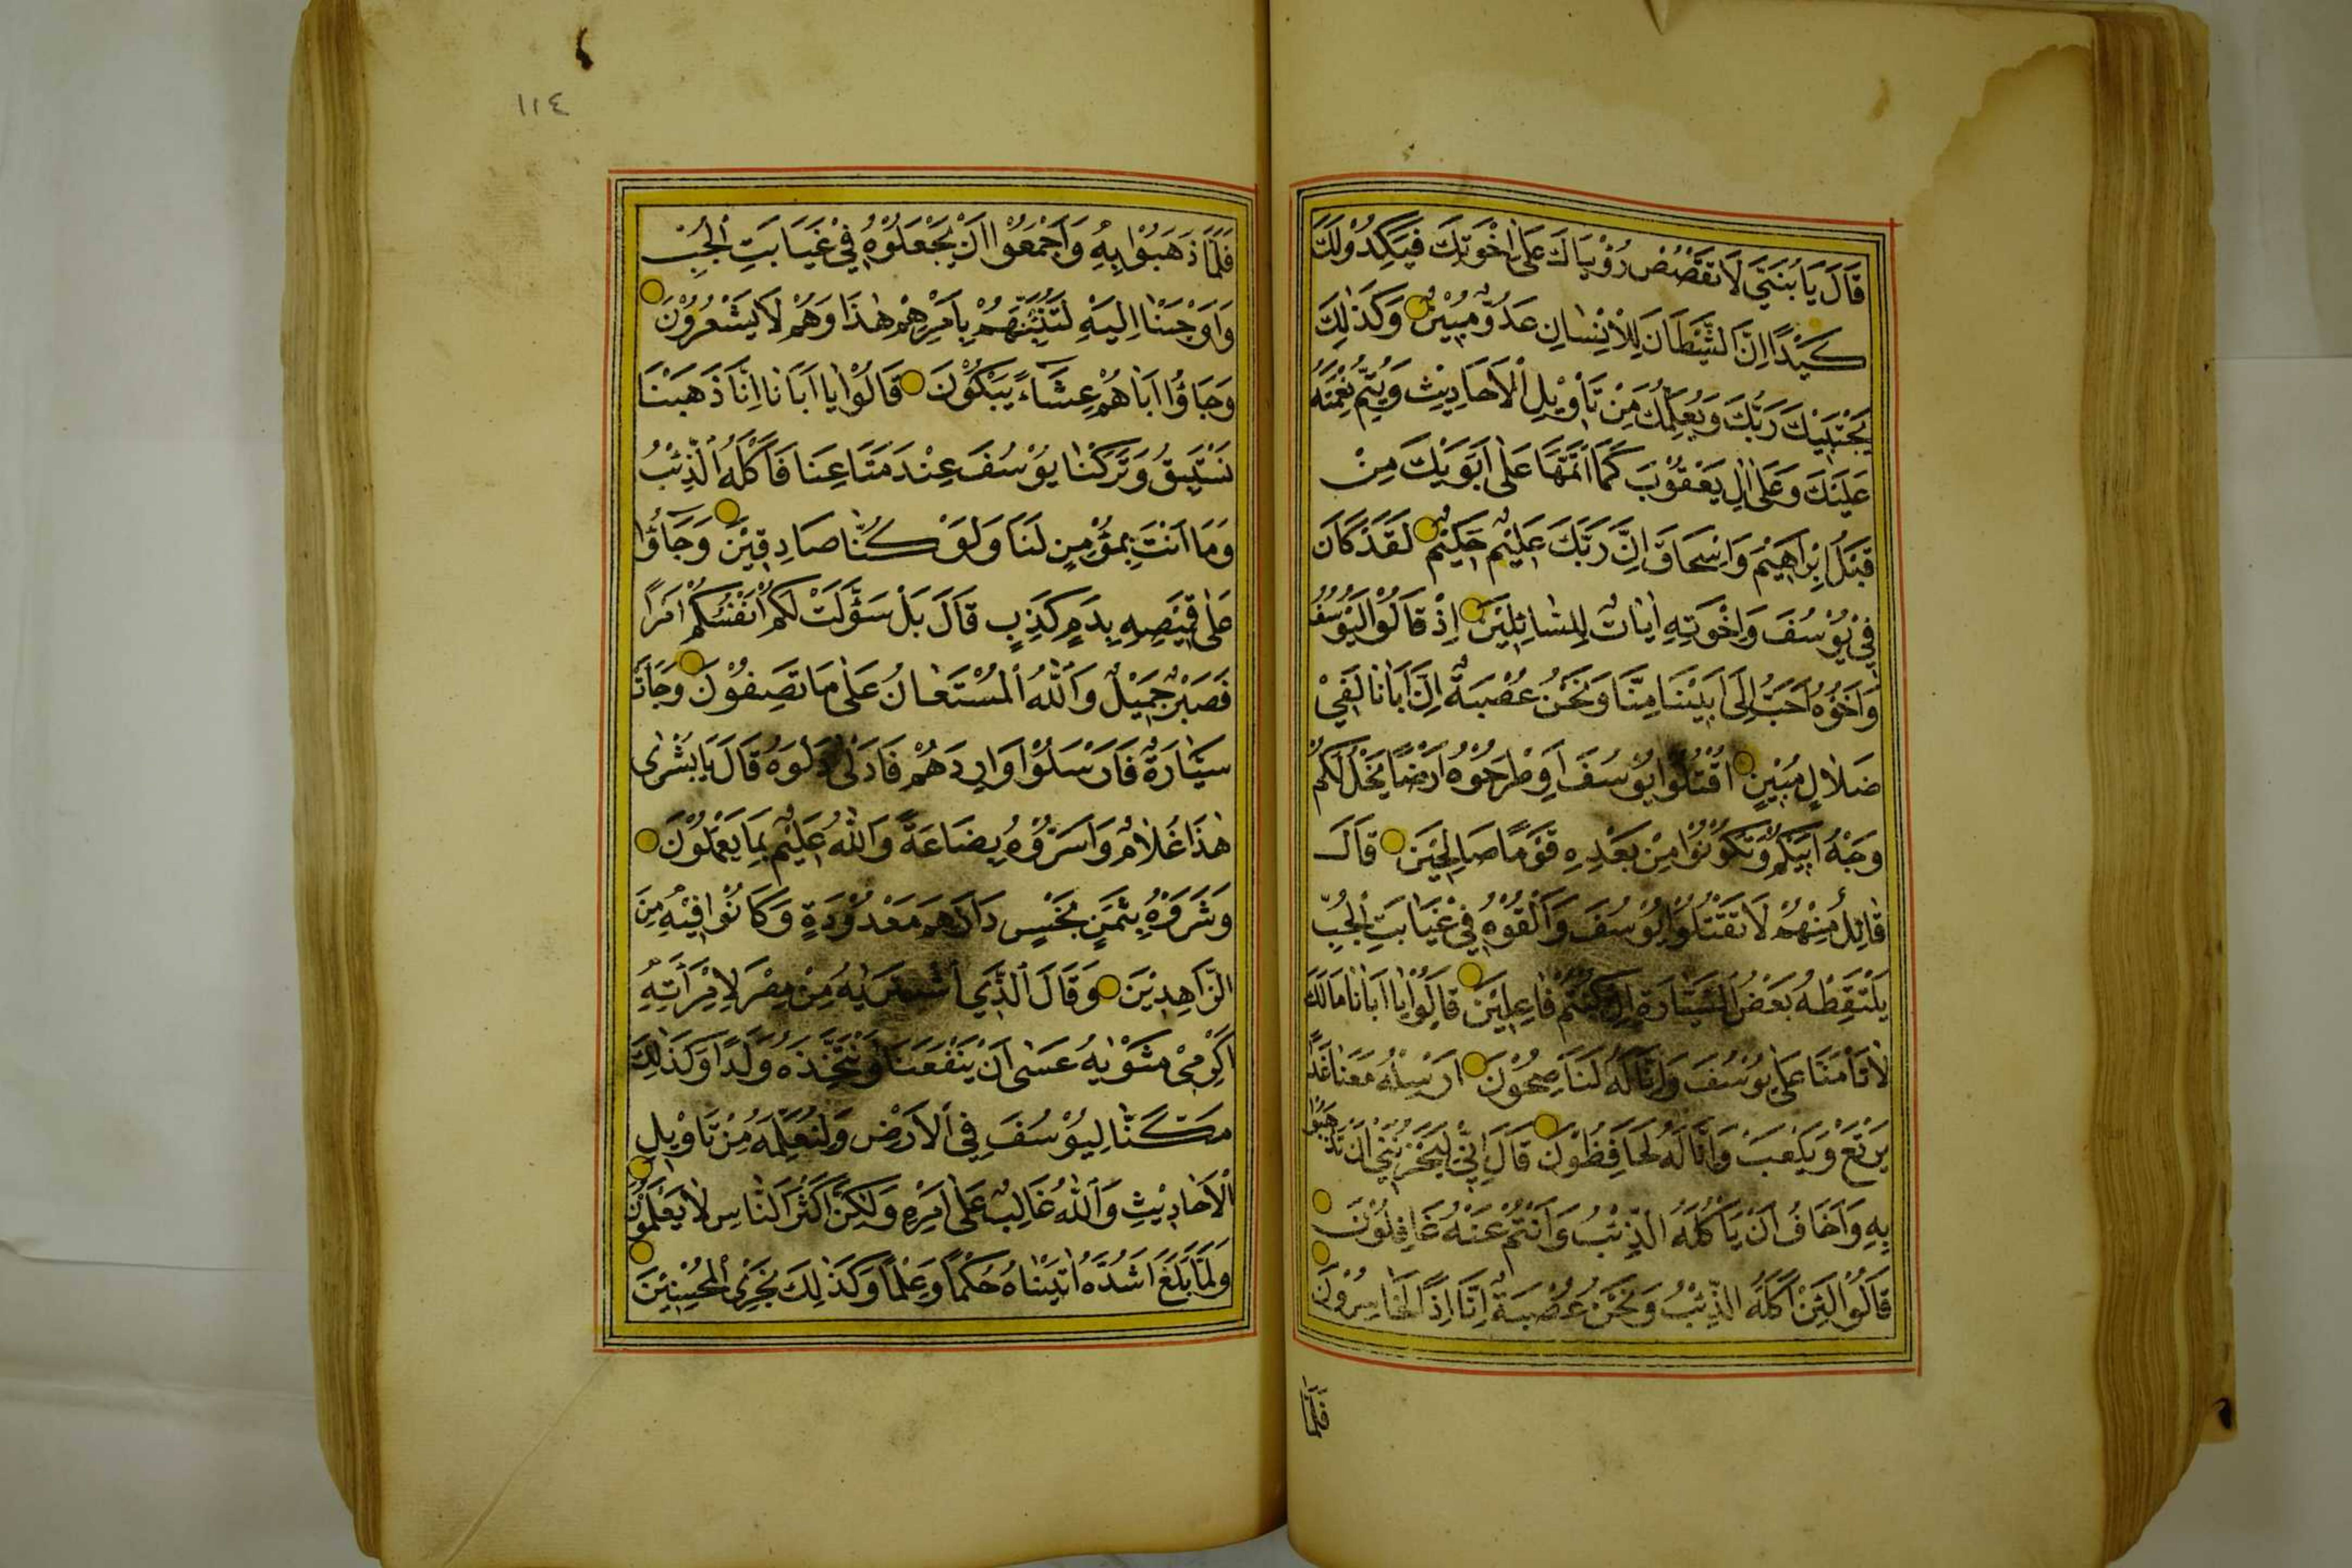 قَالَ يَا بُنَيَّ لَا تَقْصُصْ رُؤْيَاكَ عَلٰى اِخْوَتِكَ فَيَكِيدُوا لَكَ
كَيْدًا اِنَّ الشَّيْطَانَ لِلْاِنْسَانِ عَدُوٌّ مُبِيْنٌ وَكَذٰلِكَ
يَجْتَبِيْكَ رَبُّكَ وَيُعَلِّمُكَ مِنْ تَأْوِيْلِ الْاَحَادِيْثِ وَيُتِمُّ نِعْمَتَهُ
عَلَيْكَ وَعَلٰى اٰلِ يَعْقُوْبَ كَمَا اَتَمَّهَا عَلٰى اَبَوَيْكَ مِنْ
قَبْلُ اِبْرَاهِيْمَ وَاِسْحَاقَ اِنَّ رَبَّكَ عَلِيْمٌ حَكِيْمٌ لَقَدْ كَانَ
فِيْ يُوْسُفَ وَاِخْوَتِهِ اٰيَاتٌ لِلسَّائِلِيْنَ اِذْ قَالُوْا لَيُوْسُفُ
وَاَخُوْهُ اَحَبُّ اِلٰى اَبِيْنَا مِنَّا وَنَحْنُ عُصْبَةٌ اِنَّ اَبَانَا لَفِيْ
ضَلَالٍ مُبِيْنٍ اقْتُلُوْا يُوْسُفَ اَوِ طْرَحُوْهُ اَرْضًا يَخْلُ لَكُمْ
وَجْهُ اَبِيْكُمْ وَتَكُوْنُوْا مِنْ بَعْدِهِ قَوْمًا صَالِحِيْنَ قَالَ
قَائِلٌ مِنْهُمْ لَا تَقْتُلُوْا يُوْسُفَ وَاَلْقُوْهُ فِيْ غَيَابَتِ الْجُبِّ
يَلْتَقِطْهُ بَعْضُ السَّيَّارَةِ اِنْ كُنْتُمْ فَاعِلِيْنَ قَالُوْا يَا اَبَانَا مَا لَكَ
لَا تَأْمَنَّا عَلٰى يُوْسُفَ وَاِنَّا لَهُ لَنَاصِحُوْنَ اَرْسِلْهُ مَعَنَا غَدًا
يَرْتَعْ وَيَلْعَبْ وَاِنَّا لَهُ لَحَافِظُوْنَ قَالَ اِنِّيْ لَيَحْزُنُنِيْ اَنْ تَذْهَبُوْا
بِهِ وَاَخَافُ اَنْ يَأْكُلَهُ الذِّئْبُ وَاَنْتُمْ عَنْهُ غَافِلُوْنَ
قَالُوْا لَئِنْ اَكَلَهُ الذِّئْبُ وَنَحْنُ عُصْبَةٌ اِنَّا اِذًا لَخَاسِرُوْنَ
فَلَمَّا
١١٤
فَلَمَّا ذَهَبُوْا بِهِ وَاَجْمَعُوْا اَنْ يَجْعَلُوْهُ فِيْ غَيَابَتِ الْجُبِّ
وَاَوْحَيْنَا اِلَيْهِ لَتُنَبِّئَنَّهُمْ بِاَمْرِهِمْ هٰذَا وَهُمْ لَا يَشْعُرُوْنَ
وَجَاؤُا اَبَاهُمْ عِشَاءً يَبْكُوْنَ قَالُوْا يَا اَبَانَا اِنَّا ذَهَبْنَا
نَسْتَبِقُ وَتَرَكْنَا يُوْسُفَ عِنْدَ مَتَاعِنَا فَاَكَلَهُ الذِّئْبُ
وَمَا اَنْتَ بِمُؤْمِنٍ لَنَا وَلَوْ كُنَّا صَادِقِيْنَ وَجَاؤُا
عَلٰى قَمِيْصِهِ بِدَمٍ كَذِبٍ قَالَ بَلْ سَوَّلَتْ لَكُمْ اَنْفُسُكُمْ اَمْرًا
فَصَبْرٌ جَمِيْلٌ وَاللّٰهُ الْمُسْتَعَانُ عَلٰى مَا تَصِفُوْنَ وَجَاءَتْ
سَيَّارَةٌ فَاَرْسَلُوْا وَارِدَهُمْ فَاَدْلٰى دَلْوَهُ قَالَ يَا بُشْرٰى
هٰذَا غُلَامٌ وَاَسَرُّوْهُ بِضَاعَةً وَاللّٰهُ عَلِيْمٌ بِمَا يَعْمَلُوْنَ
وَشَرَوْهُ بِثَمَنٍ بَخْسٍ دَرَاهِمَ مَعْدُوْدَةٍ وَكَانُوْا فِيْهِ مِنَ
الزَّاهِدِيْنَ وَقَالَ الَّذِي اشْتَرٰيهُ مِنْ مِصْرَ لِامْرَأَتِهِ
اَكْرِمِيْ مَثْوٰيهُ عَسٰى اَنْ يَنْفَعَنَا اَوْ نَتَّخِذَهُ وَلَدًا وَكَذٰلِكَ
مَكَّنَّا لِيُوْسُفَ فِي الْاَرْضِ وَلِنُعَلِّمَهُ مِنْ تَاْوِيْلِ
الْاَحَادِيْثِ وَاللّٰهُ غَالِبٌ عَلٰى اَمْرِهِ وَلٰكِنَّ اَكْثَرَ النَّاسِ لَا يَعْلَمُوْنَ
وَلَمَّا بَلَغَ اَشُدَّهُ اٰتَيْنَاهُ حُكْمًا وَعِلْمًا وَكَذٰلِكَ نَجْزِي الْمُحْسِنِيْنَ